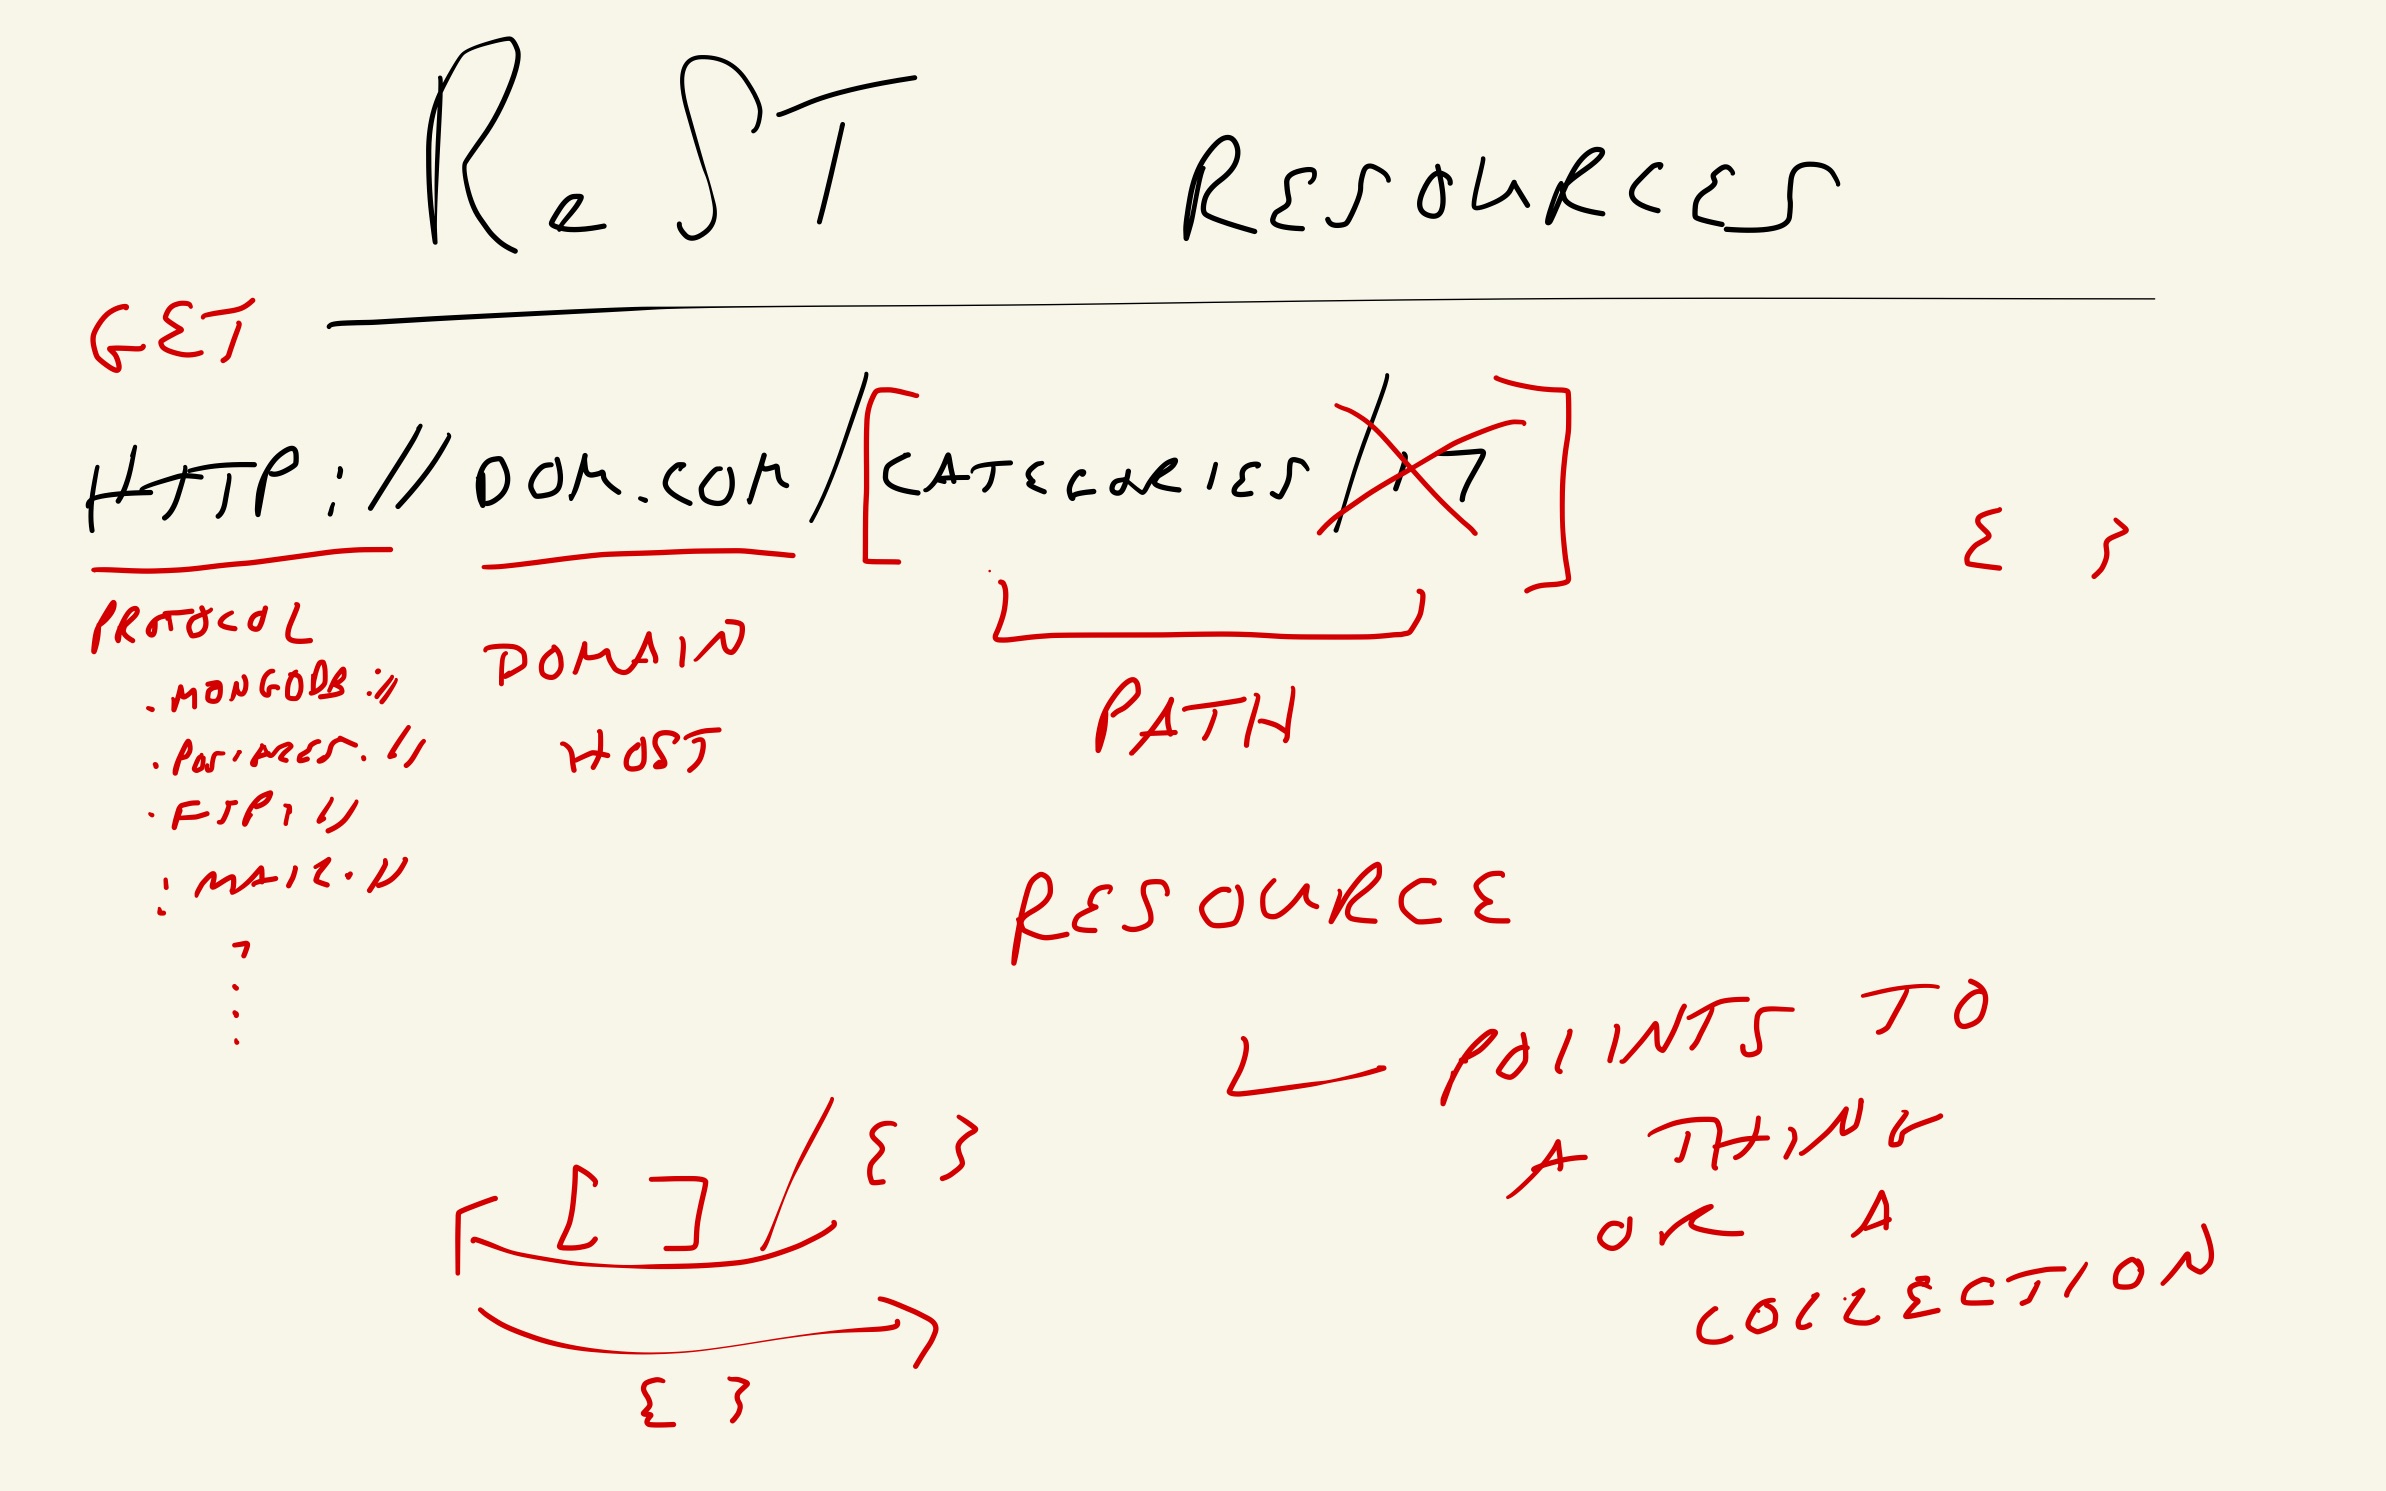 ReST RESOURCES
GET
HTTP:// DOM.COM/[CATEGORIES/17]
{ }
PROTOCOL
. MONGODB://
. POSTGRES://
. FTP://
. MAIL://
DOMAIN
HOST
PATH
RESOURCE
POINTS TO
A THING
OR A
COLLECTION
[ ] / { }
{ }